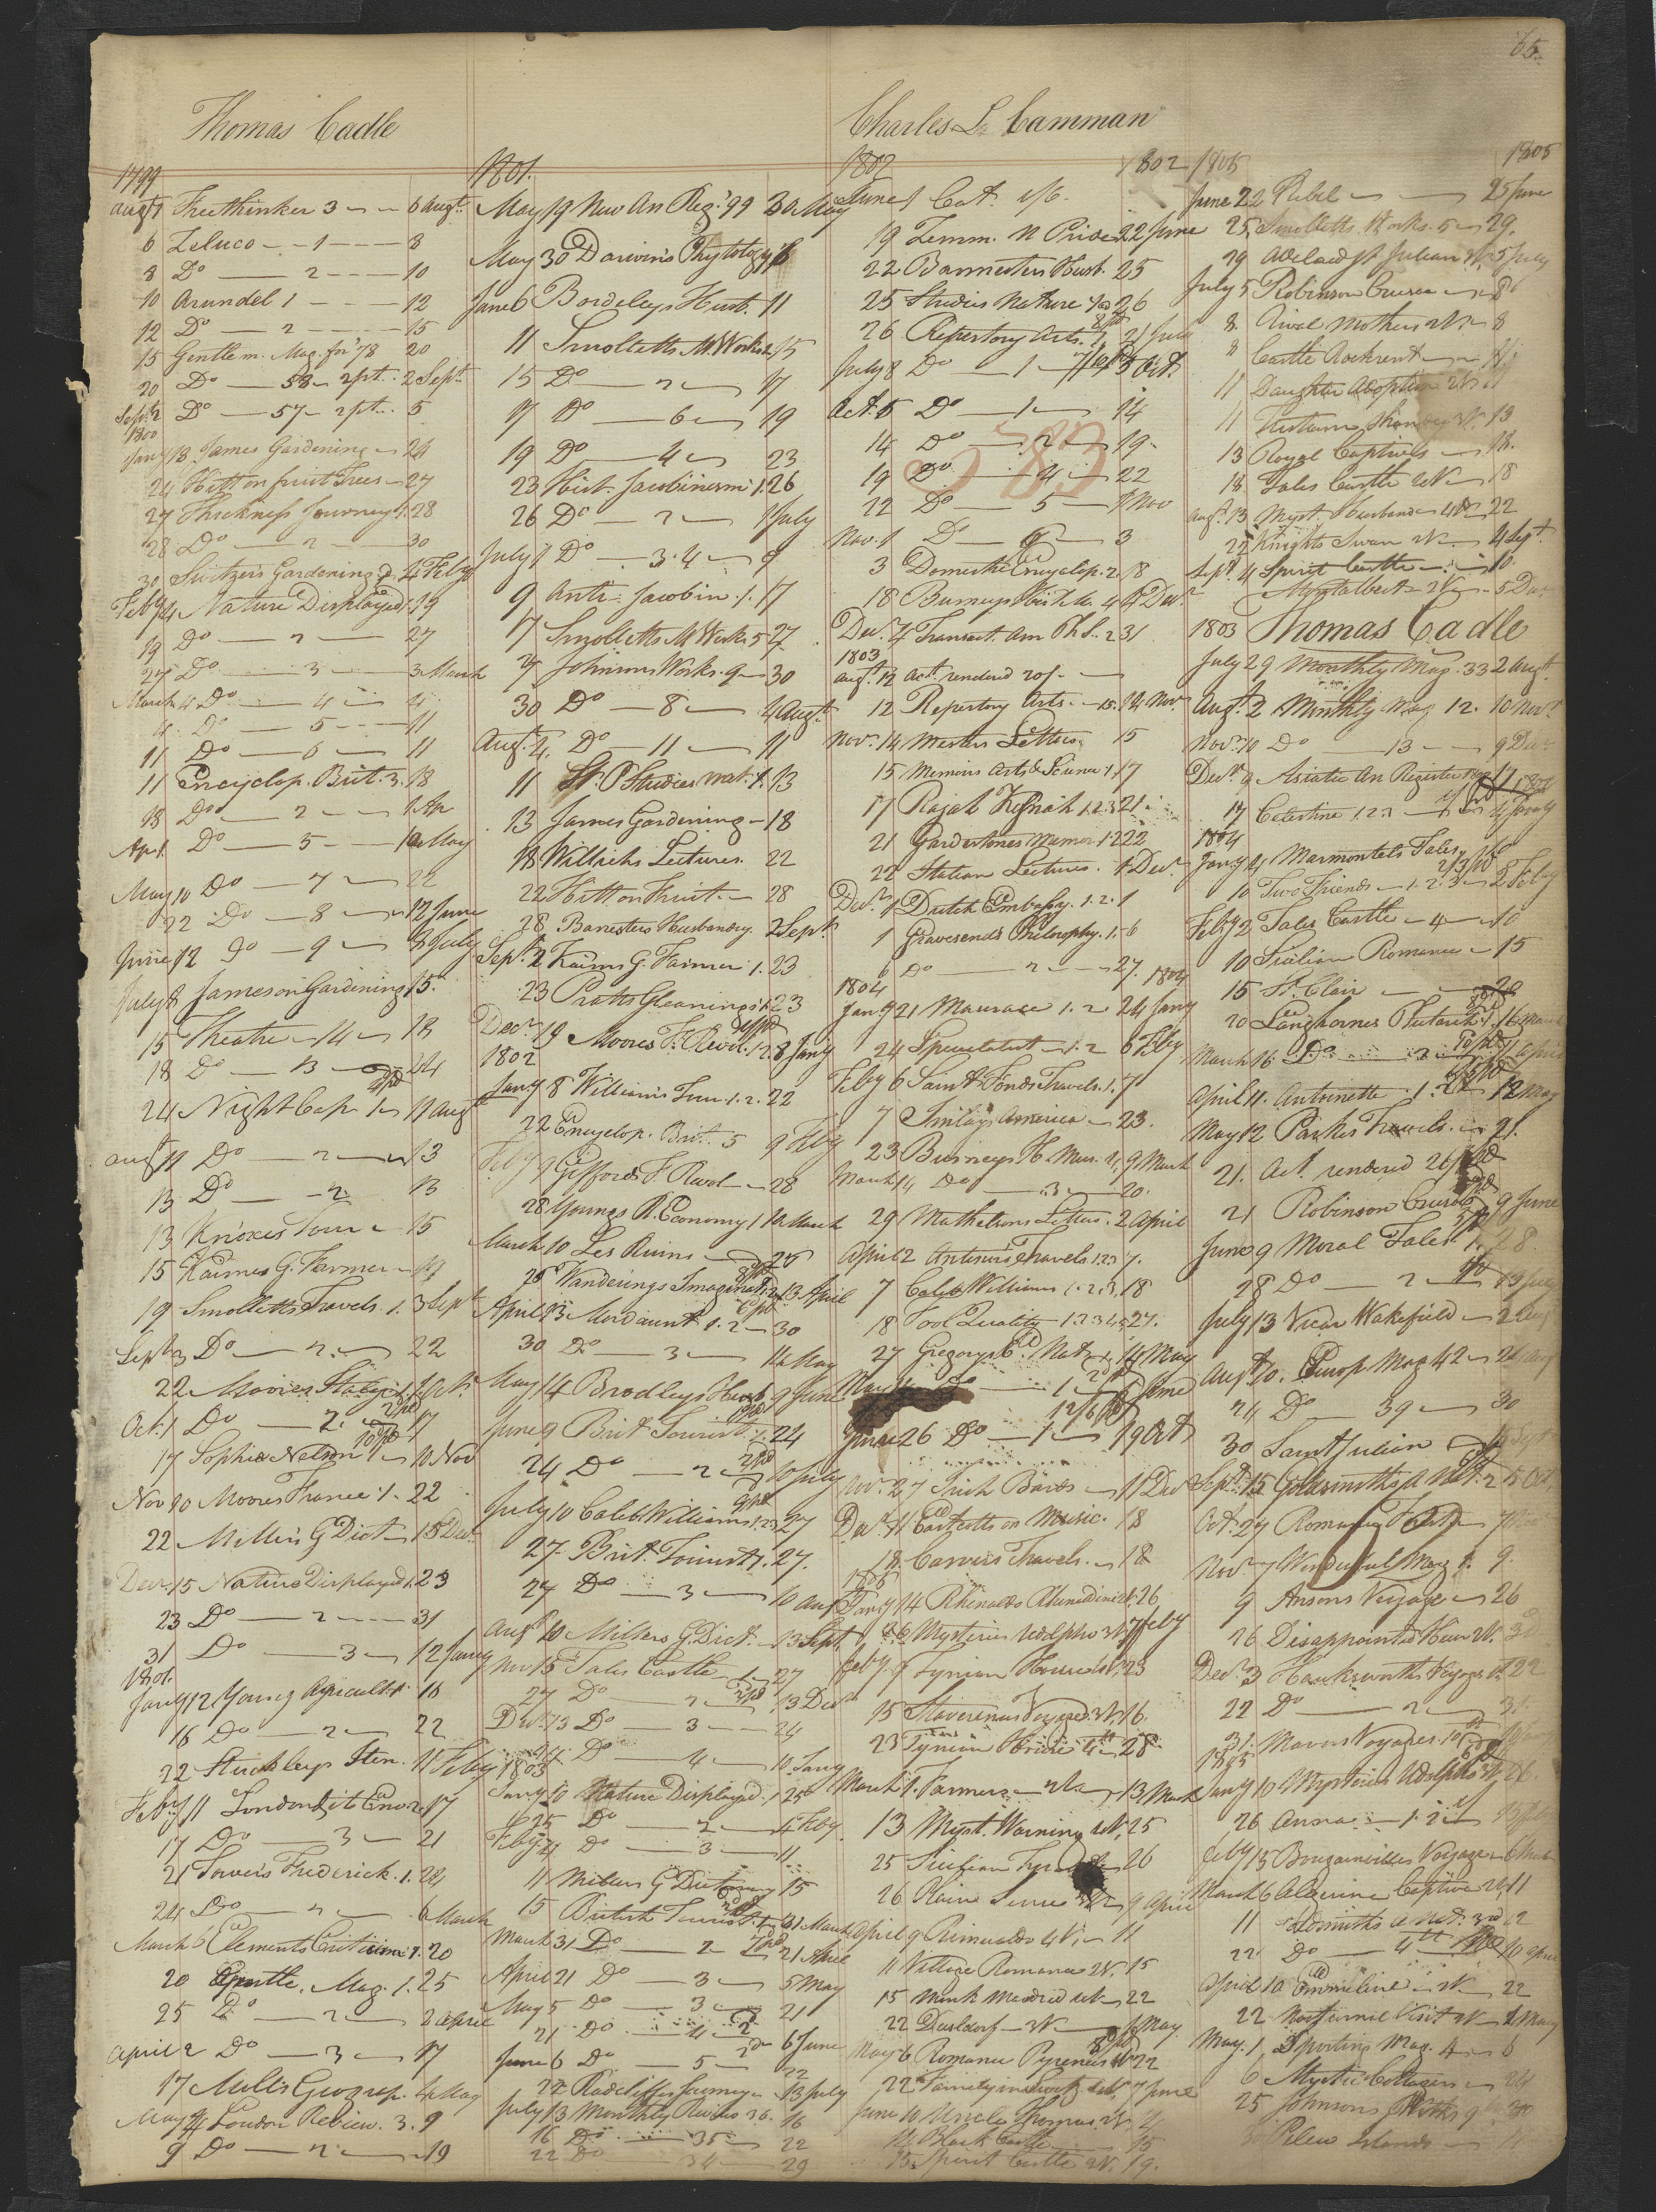 65.
Thomas Cadle
1799
Augt 1 Freethinker 3 6 Augt.
6 Zeluco 1 8
8 Do 2 10
10 Arundel 1 12
12 Do 2 15
15 Gentlem. Mag. for 78 20
20 Do 58 2pt. 2 Sept.
Sept. 2 Do 57 2pt. 5
1800
Jany 18 James Gardening 24
24 Hitt on fruit Trees 27
27 Thickness Journey 1. 28
28 Do 2 30
30 Switzers Gardening 2 4 Feby
Feby 4 Nature Displayed 1. 19
19 Do 2 27
27 Do 3 3 March
March 4 Do 4 4
4 Do 5 11
11 Do 6 11
11 Encyclop. Brit. 3. 18
18 Do 2 1 Ap
Ap 1 Do 5 10 May
May 10 Do 7 22
22 Do 8 12 June
June 12 Do 9 8 July
July 8 James on Gardening 15.
15 Theatre 14 18
18 Do 13 24
24 Night Cap 1 11 Augt
Augt 11 Do 2 13
13 Do 2 13
13 Knoxes Tour 15
15 Kaimes G. Farmer 19
19 Smolletts Travels. 1. 3 Sept
Sept 3 Do 2 22
22 Moores Italy 1. 1 Oct.
Oct. 1 Do 2. 17
17 Sophia Nelson 10 Nov
Nov 10 Moores France 1. 22
22 Millers G Dict 15 Decr.
Decr 15 Nature Displayed 1. 23
23 Do 2 31
31 Do 3 12 Jany
1801.
Jany 12 Young Agricult. 16
16 Do 2 22
22 11 Feby
Feby 11 17
17 Do 3 21
21 Towers Frederick. 1. 24
24 Do 2 6 March
March 6 Elements Criticism 1. 20
20 Mag. 1. 25
25 Do 2 2 April
April 2 Do 3 17
17 Mills Geograp. 4 May
May 4 London Review. 3. 9
9 Do 2 19
1801.
May 19 New An Reg. 99 30 May
May 30 Darwins Phytology 6
June 6 Bordeleys Hust. 11
11 Smolletts M. Works 2 15
15 Do 2 17
17 Do 6 19
19 Do 4 23
23 Hist. Jacobinism 1. 26
26 Do 2 1 July
July 1 Do 3.4 9
9 Anti-Jacobin. 1. 17
17 Smolletts M Works 5 27
27 Johnsons Works. 9 30
30 Do 8 4 Augt.
Augt. 4 Do 11 11
11 St. P. Studies Nat. 1. 13
13 James Gardening 18
18 Willichs Lectures. 22
22 Hitt on Fruit. 28
28 Banesters Husbandry. 2 Sept.
Sept. 2 Kaims G. Farmer 1. 23
23 Pratts Gleanings 1. 23
Decr 19 Moores F. Revol. 1.2 8 Jany
1802
Jany 8 Williams Tour 1.2. 22
22 Encyclop. Brit. 5 9 Feby
Feby 9 Giffords F. Revol 28
28 Youngs R. Economy 1 10 March
March 10 Les Ruins 25
25 Wanderings Imagination 13 April
April 13 Mordaunt 1.2 30
30 Do 3 14 May
May 14 Brodleys Husb. 9 June
June 9 Brit Tourist. 1. 24
24 Do 2 10 July
July 10 Caleb Williams 1.2.3 27
27 Brit. Tourist 1. 27.
27 Do 3 10 Aug
Augt 10 Millers G. Dict. 13 Sept.
Nov 15 Tales Castle 1. 27
27 Do 2 13 Decr
Decr. 13 Do 3 24
24 Do 4 10 Jany
1803
Jany 10 Nature Displayed. 1 25
25 Do 2 4 Feby
Feby 4 Do 3 11
11 Millers G Dictionary 15
15 British Tourist. 1. 31 March
March 31 Do 2 21 April
April 21 Do 3 5 May
May 5 Do 3 21
21 Do 4 6 June
June 6 Do 5 22
22 Radcliffes Journey 13 July
July 13 Monthly Review 36. 16
16 Do 35 22
22 Do 34 29
Charles L. Camman
1802 1802
June 1 Cat. 1/6.
19 Zemm. N Pride 22 June
22 Bannesters Husb. 25
25 Studies Nature 26
26 Repertory Arts. 21 July
July 8 Do 1 5 Oct.
Oct. 5 Do 1 14
14 Do 2 19
583
19 Do 4 22
22 Do 5 1 Nov
Nov. 1 Do 6 3
3 Domestic Encyclop. 2. 18
18 Burneys Hist. 4 4 Decr
Decr. 4 Transact. Am Ph S. 2 31
1803
Augt. 12 Act rendered 20/
12 Repertory Arts. 15. 14 Nov.
Novr. 14 Letters 15
15 Memoirs Arts & Science 1. 17
17 Rajah Kisnah 1.2.3 21
21 Gardentones Memoir 1.2 22
22 Italian Lectures. 1 Decr
Decr. 1 Dutch Embassy. 1.2. 1
1 Gravesend's Philosophy. 1. 6
6 Do 2 27.
1804 1804
Jany 21 Maurase 1.2 24 Jany
24 Speculatist 1.2 6 Feby
Feby 6 Saint Fonds Travels. 1. 7
7 Imlays America 23.
23 Burneys H. Mus. 2, 9 March
March 14 Do 3 20.
29 Letters. 2 April
April 2 Travels 1.2.3 7.
7 Caleb Williams 1.2.3, 18
18 Fool Quality 1.2.3.4.5 27.
27 Gregorys Nat. 14 May
Do 1 June
June 26 Do 1 19 Oct
Novr. 27 Irish Bards 11 Dec
Decr. 11 Eastcotts on Music. 18
18 Carvers Travels. 18
1805
Jany 14 26
26 Mysteries Udolpho 3V. 7 Feby
Feby. 7 Tynian House 23
15 Staverinus Voyage 3V. 16.
23 Tynian House 4th 28
March 1. Farmers 2V 13 March
13 Myst. Warning 2V. 25
25 Sicilian 26
26 Plain Sense 3V. 9 April
April 9 Rimualdo 4V. 11
11 Romance 2V. 15
15 Monk Madrid 22
22 Dusldorf 3V. 6 May
May 6 Romance Pyrenees 22
22 Family 7 June
June 10 Uncle Thomas 2V.
12 Black Castle 15
15 Spirit Castle 2V. 19.
1805 1805
June 22 Rebel 25 June
25. Smolletts Works. 5 29.
29 Adelaid St Julian 3V. 5 July
July 5 Robinson Crusoe 8
8. Rival Mothers 2V. 8
8 Castle Rackrent 11
11 Daughter Adoption 2V. 11
11 Tristram Shandy 3V. 13
13 Royal Captives 18.
18 Tales Castle 2V. 18
Augt. 13 Myst. Husband 4V. 22
22 Knights Swan 2V. 4 Sept.
Sept. 4 Spirit Castle 10.
Montalbert 2V. 5 Dec
1803 Thomas Cadle
July 29 Monthly Mag. 33 2 Augt.
Augt. 2 Monthly Mag 12. 10 Novr.
Novr. 10 Do 13 9 Dec
Decr. 9 Asiatic An Register 17
17 Celestina 1.2.3 4 Jany
1804
Jany 4 Marmontels Tales
10 Two Friends 1.2.3 2 Feby
Feby 2 Tales Castle 4 10
10 Sicilian Romance 15
15 St. Clair 20
20 Langhornes Plutarch 1. 16 March
March 16 Do 2 11 April
April 11. Antoinette 1.2 12 May
May 12 Parks Travels. 21.
21. Act. rendered
21 Robinson Crusoe 9 June
June 9 Moral Tales 1. 28.
28 Do 2 13 July
July 13 Vicar Wakefield 2 Aug
Augt 10. Europ. Mag 42 24 Aug
24 Do 39 30
30 Saint Julian Sept
Sept. 15 Goldsmiths A Nat. 2 5 Oct
Oct. 27 Romance 7 Nov
Novr. 7 Wonderful Mag 1. 9.
9 Ansons Voyage 26
26 Disappointed Heir 2V. 3 D
Decr. 3 Hawksworths Voyages 1. 22
22 Do 2 31.
31. Mavors Voyages 10
1805
Jany 10 Mysteries Udolpho 3V. 26.
26 Anna 1.2
Feby 15 Bougainvilles Voyage 6 March
March 6 Algerine Captive 2V. 11
11 Goldsmiths A Nat. 3rd 22
22 Do 4th 10 April
April 10 Emmeline 2V. 22
22 Nocturnal Visit 1 May
May 1. Sporting Mag. 4 6
6 Mystic Cottager 24
25 Johnsons Works 9
Pelew Islands